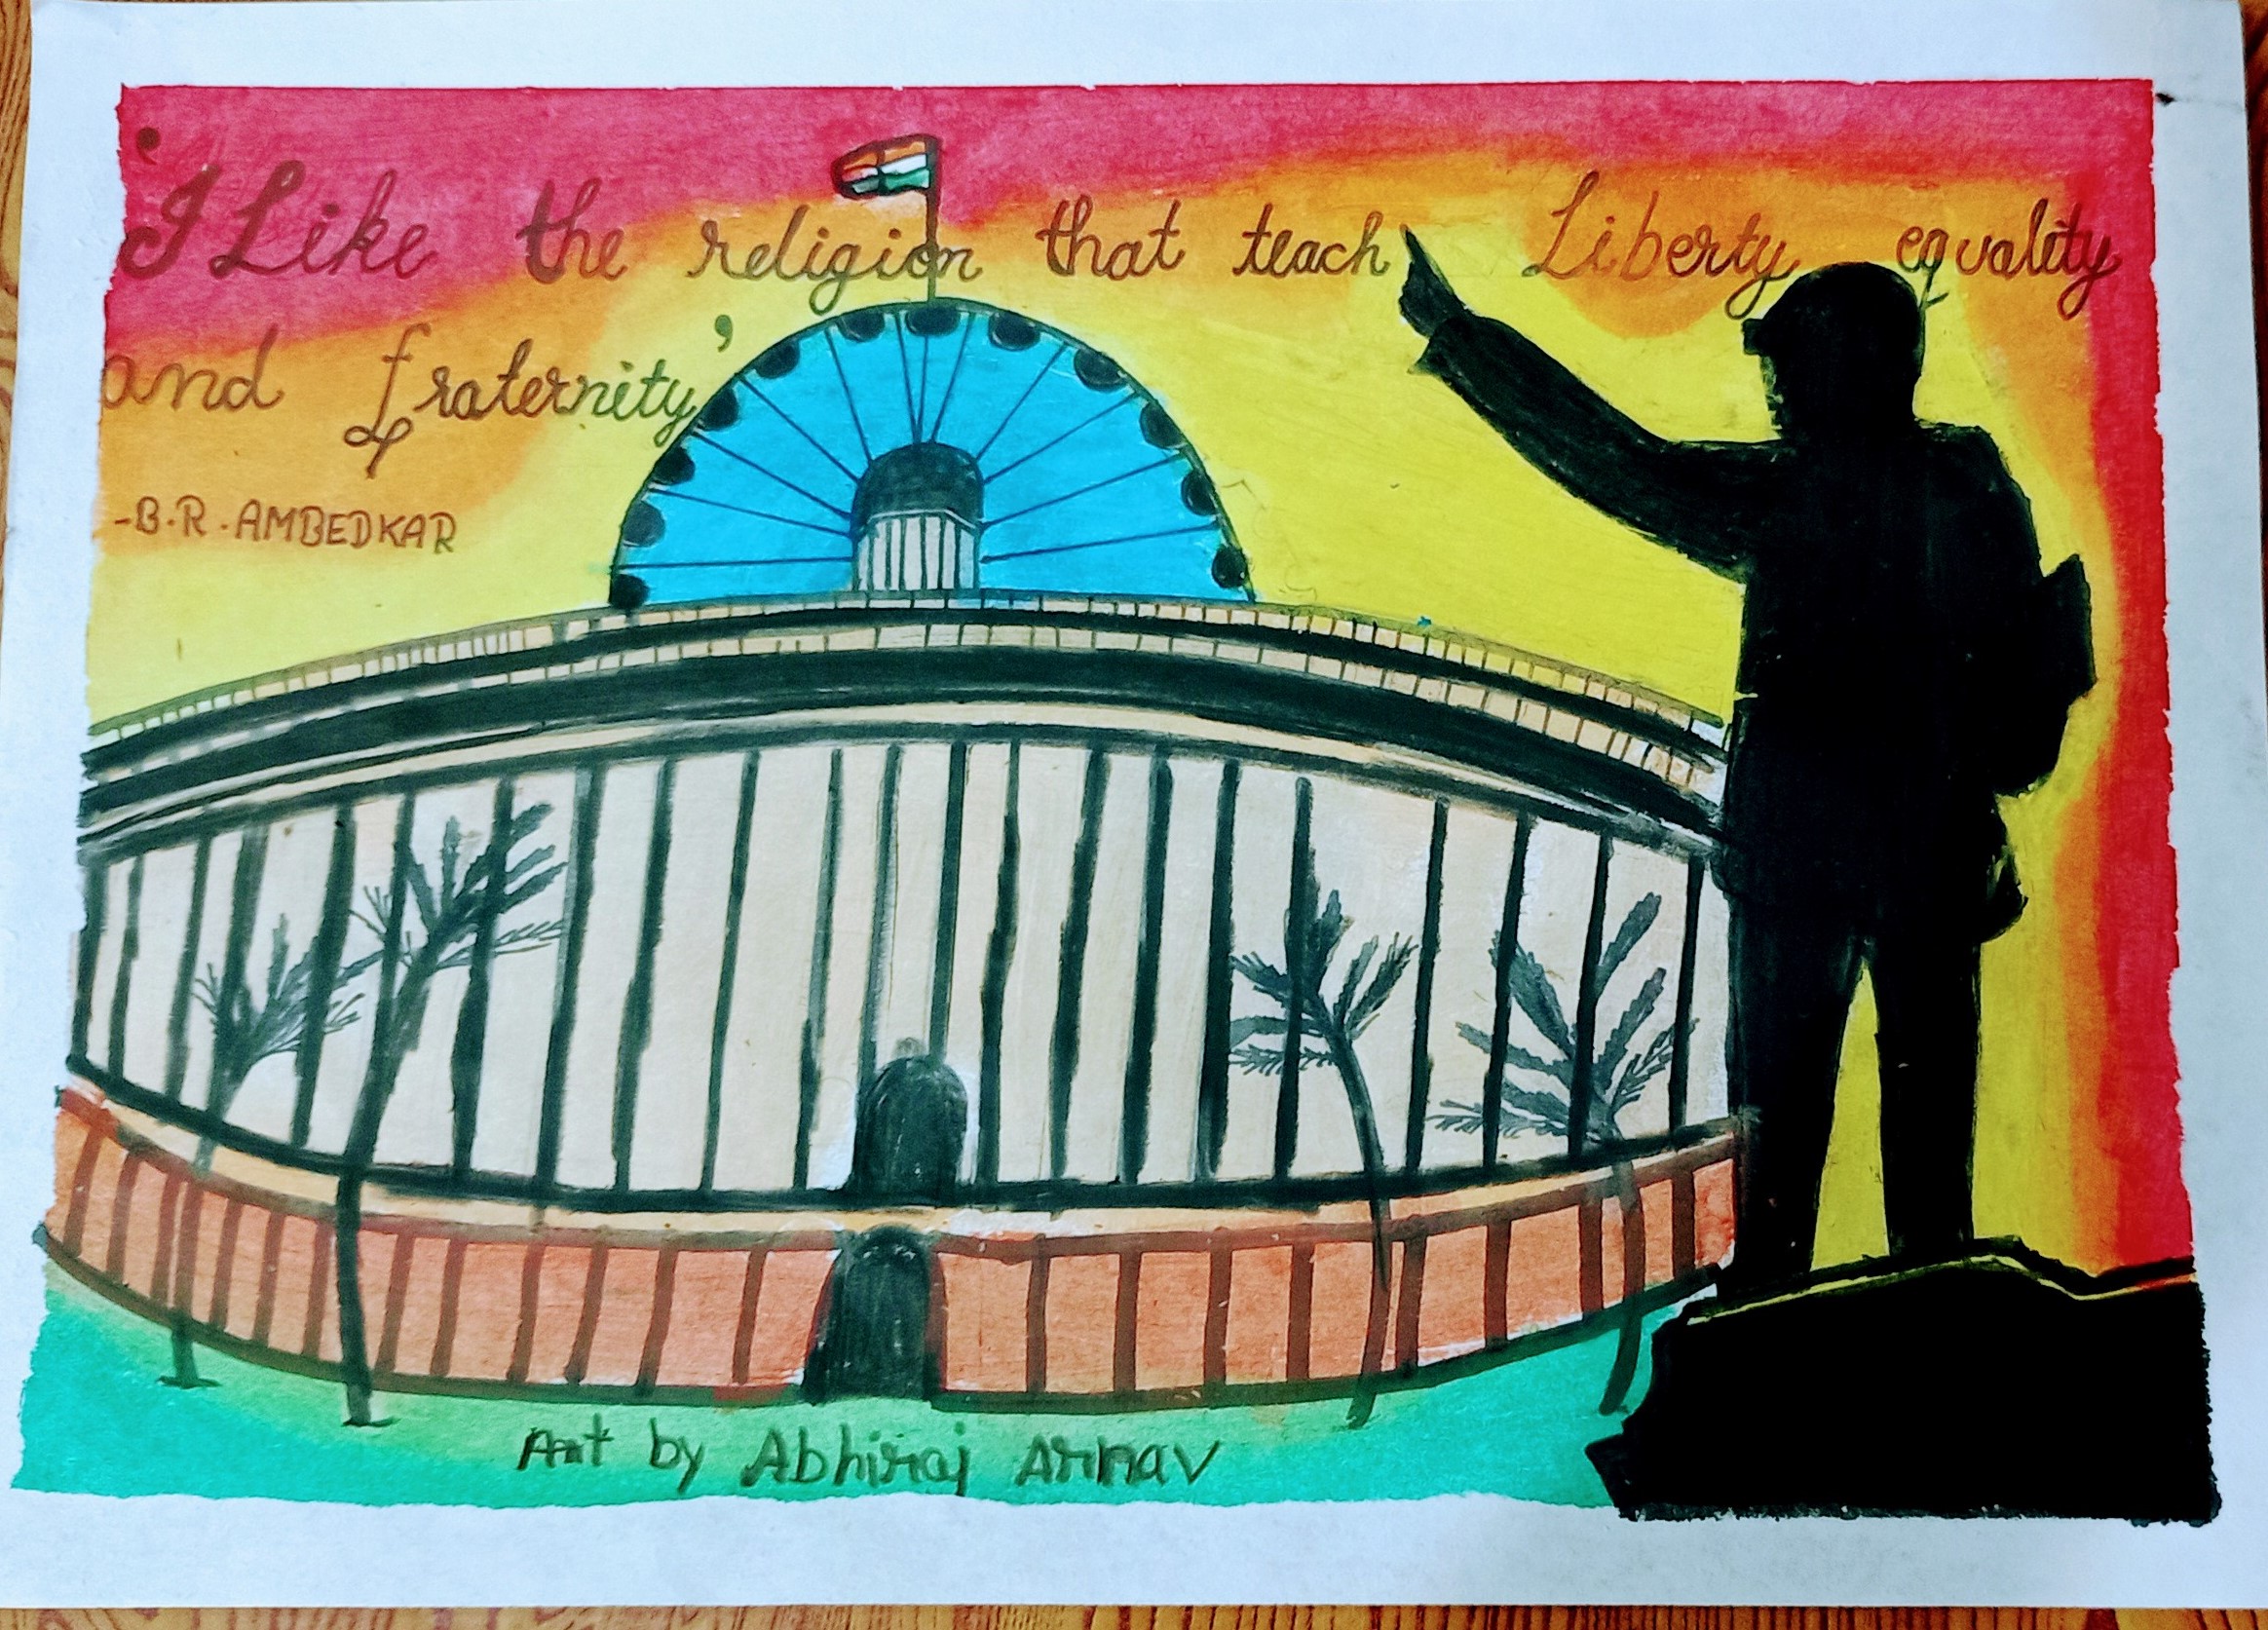 'I Like the religion that teach Liberty equality
and fraternity'
-B.R.AMBEDKAR
Art by Abhiraj Arnav